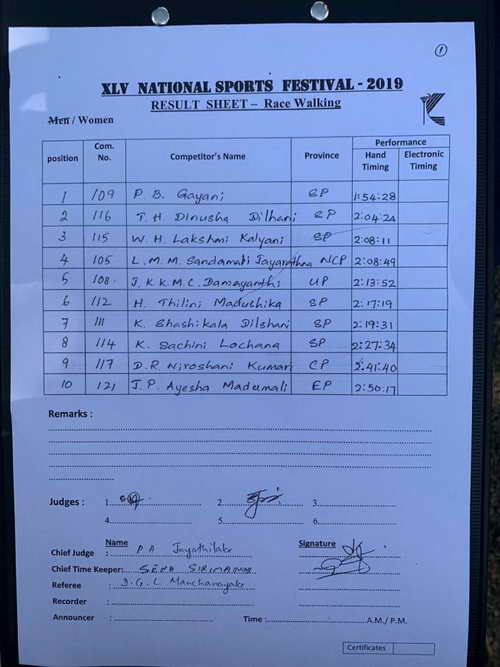 1
XLV NATIONAL SPORTS FESTIVAL - 2019
RESULT SHEET – Race Walking
Men / Women
position Com. No. Competitor's Name Province Performance
Hand Timing Electronic Timing
1 109 P. B. Gayani 1:54:28
2 116 T. H Dinusha Dilhani 2:04:24
3 115 W. H. Lakshmi Kalyani SP 2:08:11
4 105 L. M. M. Sandamali Jayarathna NCP 2:08:49
5 108. J. K. K. M. C. Damayanthi UP 2:13:52
6 112 H. Thilini Madushika SP 2:17:19
7 111 K. Shashikala Dilshani SP 2:19:31
8 114 K. Sachini Lochana SP 2:27:34
9 117 D. R. Niroshani Kumari CP 2:41:40
10 121 J. P. Ayesha Madumali EP 2:50:17
Remarks :
Judges : 1. 2. 3.
4. 5. 6.
Name Signature
Chief Judge : P A Jayathilake
Chief Time Keeper:
Referee : D. G. L Manchanayake
Recorder :
Announcer : Time : A.M./ P.M.
Certificates